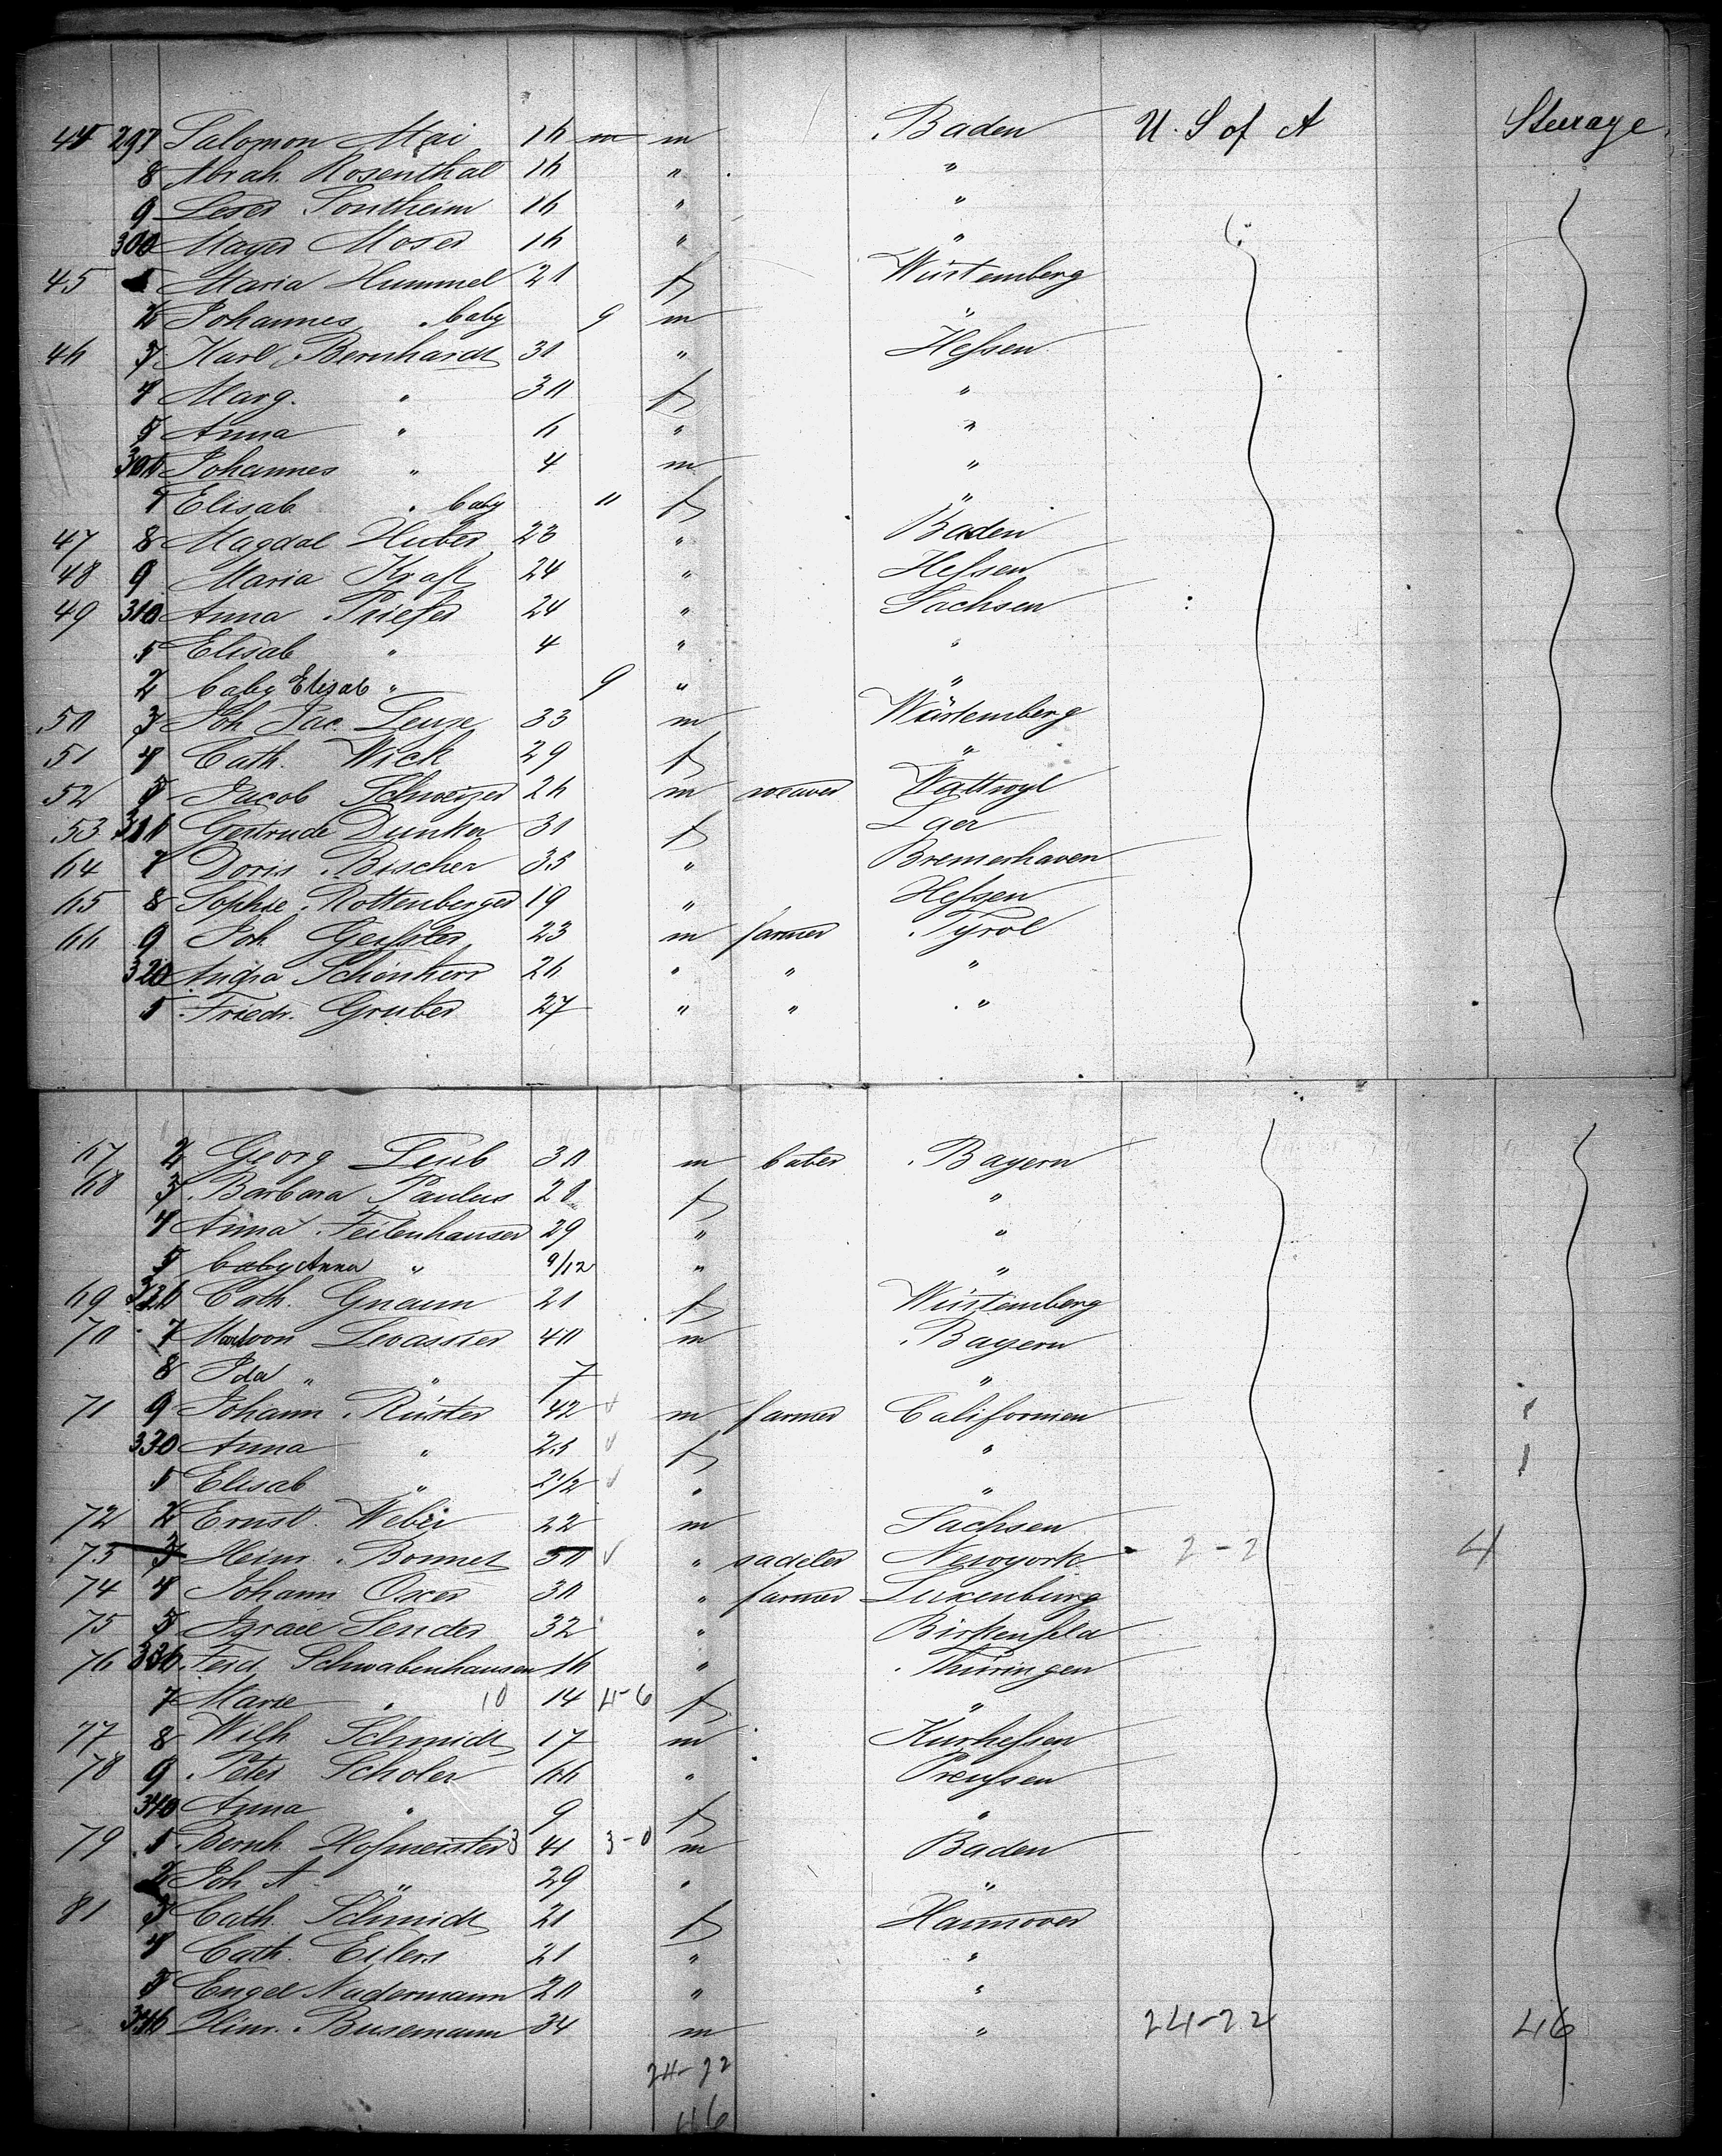 44 297 Salomon Mai 16 m m Baden U. S of A Steerage
8 Abrah. Rosenthal 16 " "
9 Leser Sontheim 16 " "
300 Mayer Moser 16 " "
45 1 Maria Hummel 21 f Würtemberg
2 Johannes " baby 9 m "
46 3 Karl Bernhardt 31 " Hessen
4 Marg. " 30 f "
5 Anna " 6 " "
306 Johannes " 4 m "
7 Elisab " baby 11 f "
47 8 Magdal Huber 23 " Baden
48 9 Maria Kraft 24 " Hessen
49 310 Anna Priefer 24 " Sachsen
1 Elisab " 4 " "
2 baby Elisab " 9 " "
50 3 Joh Jac. Leuze 33 m Würtemberg
51 4 Cath. Wick 29 f "
52 5 Jacob Schweizer 26 m weaver Wattwyl
53 316 Gertrude Dunker 31 f Laer
64 7 Doris Bischer 35 " Bremerhaven
65 8 Sophie Rottenberger 19 " Hessen
66 9 Joh Geissler 23 m farmer Tyrol
320 Schönherr 26 " " "
1 Friedr. Gruber 27 " " "
67 2 Georg Leub 30 m Bayern
68 3 Barbara Paulus 28 f "
4 Anna Feilenhauser 29 " "
5 baby Anna " 9/12 " "
69 326 Cath. Gnaum 21 f Würtemberg
70 7 von Levassier 40 m Bayern
8 Ida " " 7 "
71 9 Johann Rüster 42 m farmer Californien
330 Anna " 25 f "
1 Elisab " 2 1/2 " "
72 2 Ernst Weber 22 m Sachsen
73 3 Heinr. Bonnet 50 " sadeler Newyork 2-2 4
74 4 Johann Oxer 30 " farmer Luxenburg
75 5 Israel Sender 32 " Birkenfeld
76 336 Ferd. Schwabenhausen 16 " Thüringen
7 Marie " 10 14 4-6 f "
77 8 Wilh Schmidt 17 m Kurhessen
78 9 Peter Scholer 66 " Preussen
340 Anna " 9 f "
79 1 Bernh. Hofmeister 3 41 3-0 m Baden
2 Joh A " 29 " "
81 3 Cath. Schmidt 21 f Hannover
4 Cath. Eilers 21 " "
5 Engel Nadermann 20 " "
346 Hinr. Busemann 34 m " 24-22 46
24-22
46